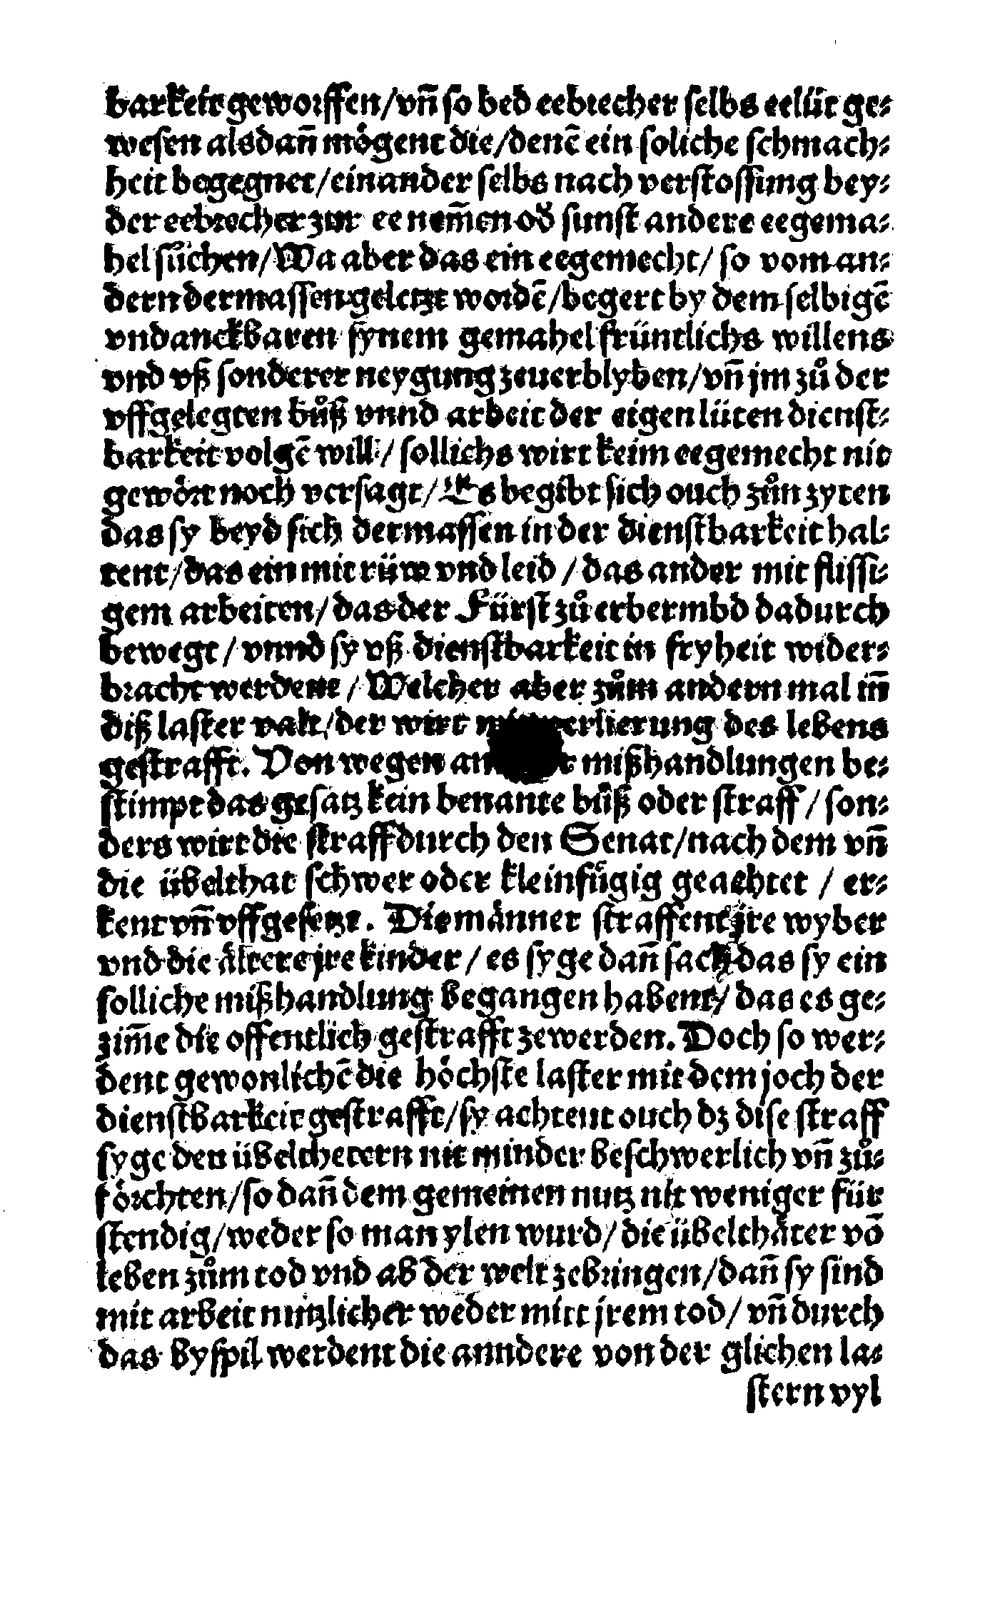 barkeit geworffen/vn̄ so bed eebrecher selbs eelüt ge⸗
wesen alsdañ mögent die/denē ein soliche schmach⸗
heit begegnet/einander selbs nach verstossung bey⸗
der eebrecher zur ee nem̄en od̕ sunst andere eegema⸗
hel sůchen/Wa aber das ein eegemecht/ so vom an⸗
dern dermassen geletzt wordē/begert by dem selbigē
vndanckbaren synem gemahel früntlichs willens
vnd vß sonderer neygung zeuerblyben/vn̄ jm zů der
vffgelegten bůß vnnd arbeit der eigen lüten dienst⸗
barkeit volgē will/ sollichs wirt keim eegemecht nit
gewört noch versagt/Es begibt sich ouch zůn zyten
das sy beyd sich dermassen in der dienstbarkeit hal⸗
tent/das ein mit rüw vnd leid/das ander mit flissi⸗
gem arbeiten/das der Fürst zů erbermbd dadurch
bewegt/vnnd sy vß dienstbarkeit in fryheit wider⸗
bracht werdent/Welcher aber zům andern mal in̄
diß laster valt/der wirt verlierung des lebens
gestrafft. Von wegen mißhandlungen be⸗
stimpt das gesatz kein benante bůß oder straff/son⸗
ders wirt die straff durch den Senat/nach dem vn̄
die übelthat schwer oder kleinfůgig geachtet / er⸗
kent vn̄ vffgesetzt. Die männer straffent jre wyber
vnd die ältere jre kinder/ es syge dan̄ sach das sy ein
solliche mißhandlung begangen habent/ das es ge⸗
zim̄e die offentlich gestrafft zewerden. Doch so wer⸗
dent gewonlichē die höchste laster mit dem joch der
dienstbarkeit gestrafft/sy achtent ouch dz dise straff
syge den übelthetern nit minder beschwerlich vn̄ zů⸗
förchten/so dan̄ dem gemeinen nutz nit weniger für
stendig/weder so man ylen wurd/die übelthäter vō
leben zům tod vnd ab der welt zebringen/dan̄ sy sind
mit arbeit nutzlicher weder mitt jrem tod/ vn̄ durch
das byspil werdent die anndere von der glichen la⸗
stern vyl